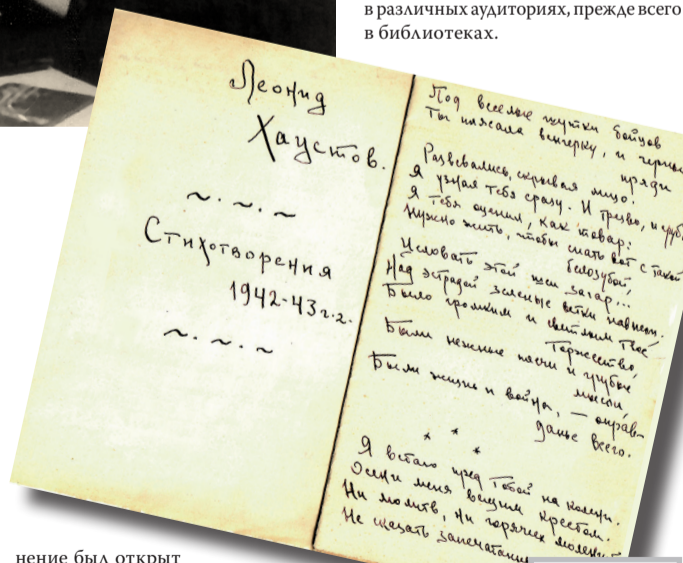 в различных аудиториях, прежде всего
в библиотеках.
Леонид
Хаустов.
Стихотворения
1942-43 г.г.
Под веселые шутки бойцов
Ты плясала венгерку, и черные
пряди
Развевались, скрывая лицо.
Я узнал тебя сразу. И трезво, и грубо
Я тебя оценил, как товар:
Нужно жить, чтобы спать вот с такой
белозубой,
Целовать этой шеи загар...
Над эстрадой зеленые ветки нависли.
Было громким и светлым твое
Торжество,
Были нежные плечи и грубые
мысли,
Были жизнь и война, — оправ-
данье всего.
* * *
Я встаю пред Тобой на колени.
Осени меня вещим крестом.
Ни молитв, ни горячих молений
Не сказать
нение был открыт